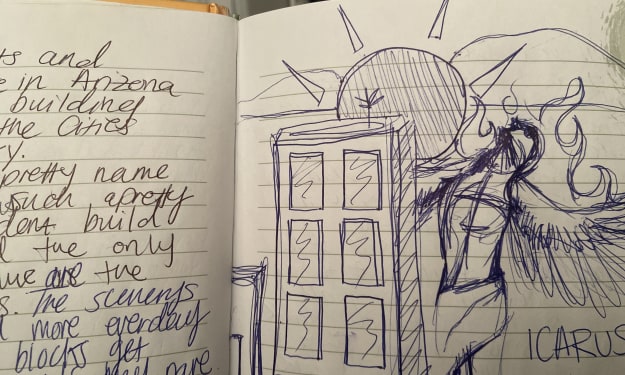 ts and
e in Arizona
building
the Cities
y.
pretty name
such a pretty
dent build
l the only
we are the
s. The scenerys
d more everday
blocks get
are
ICARUS